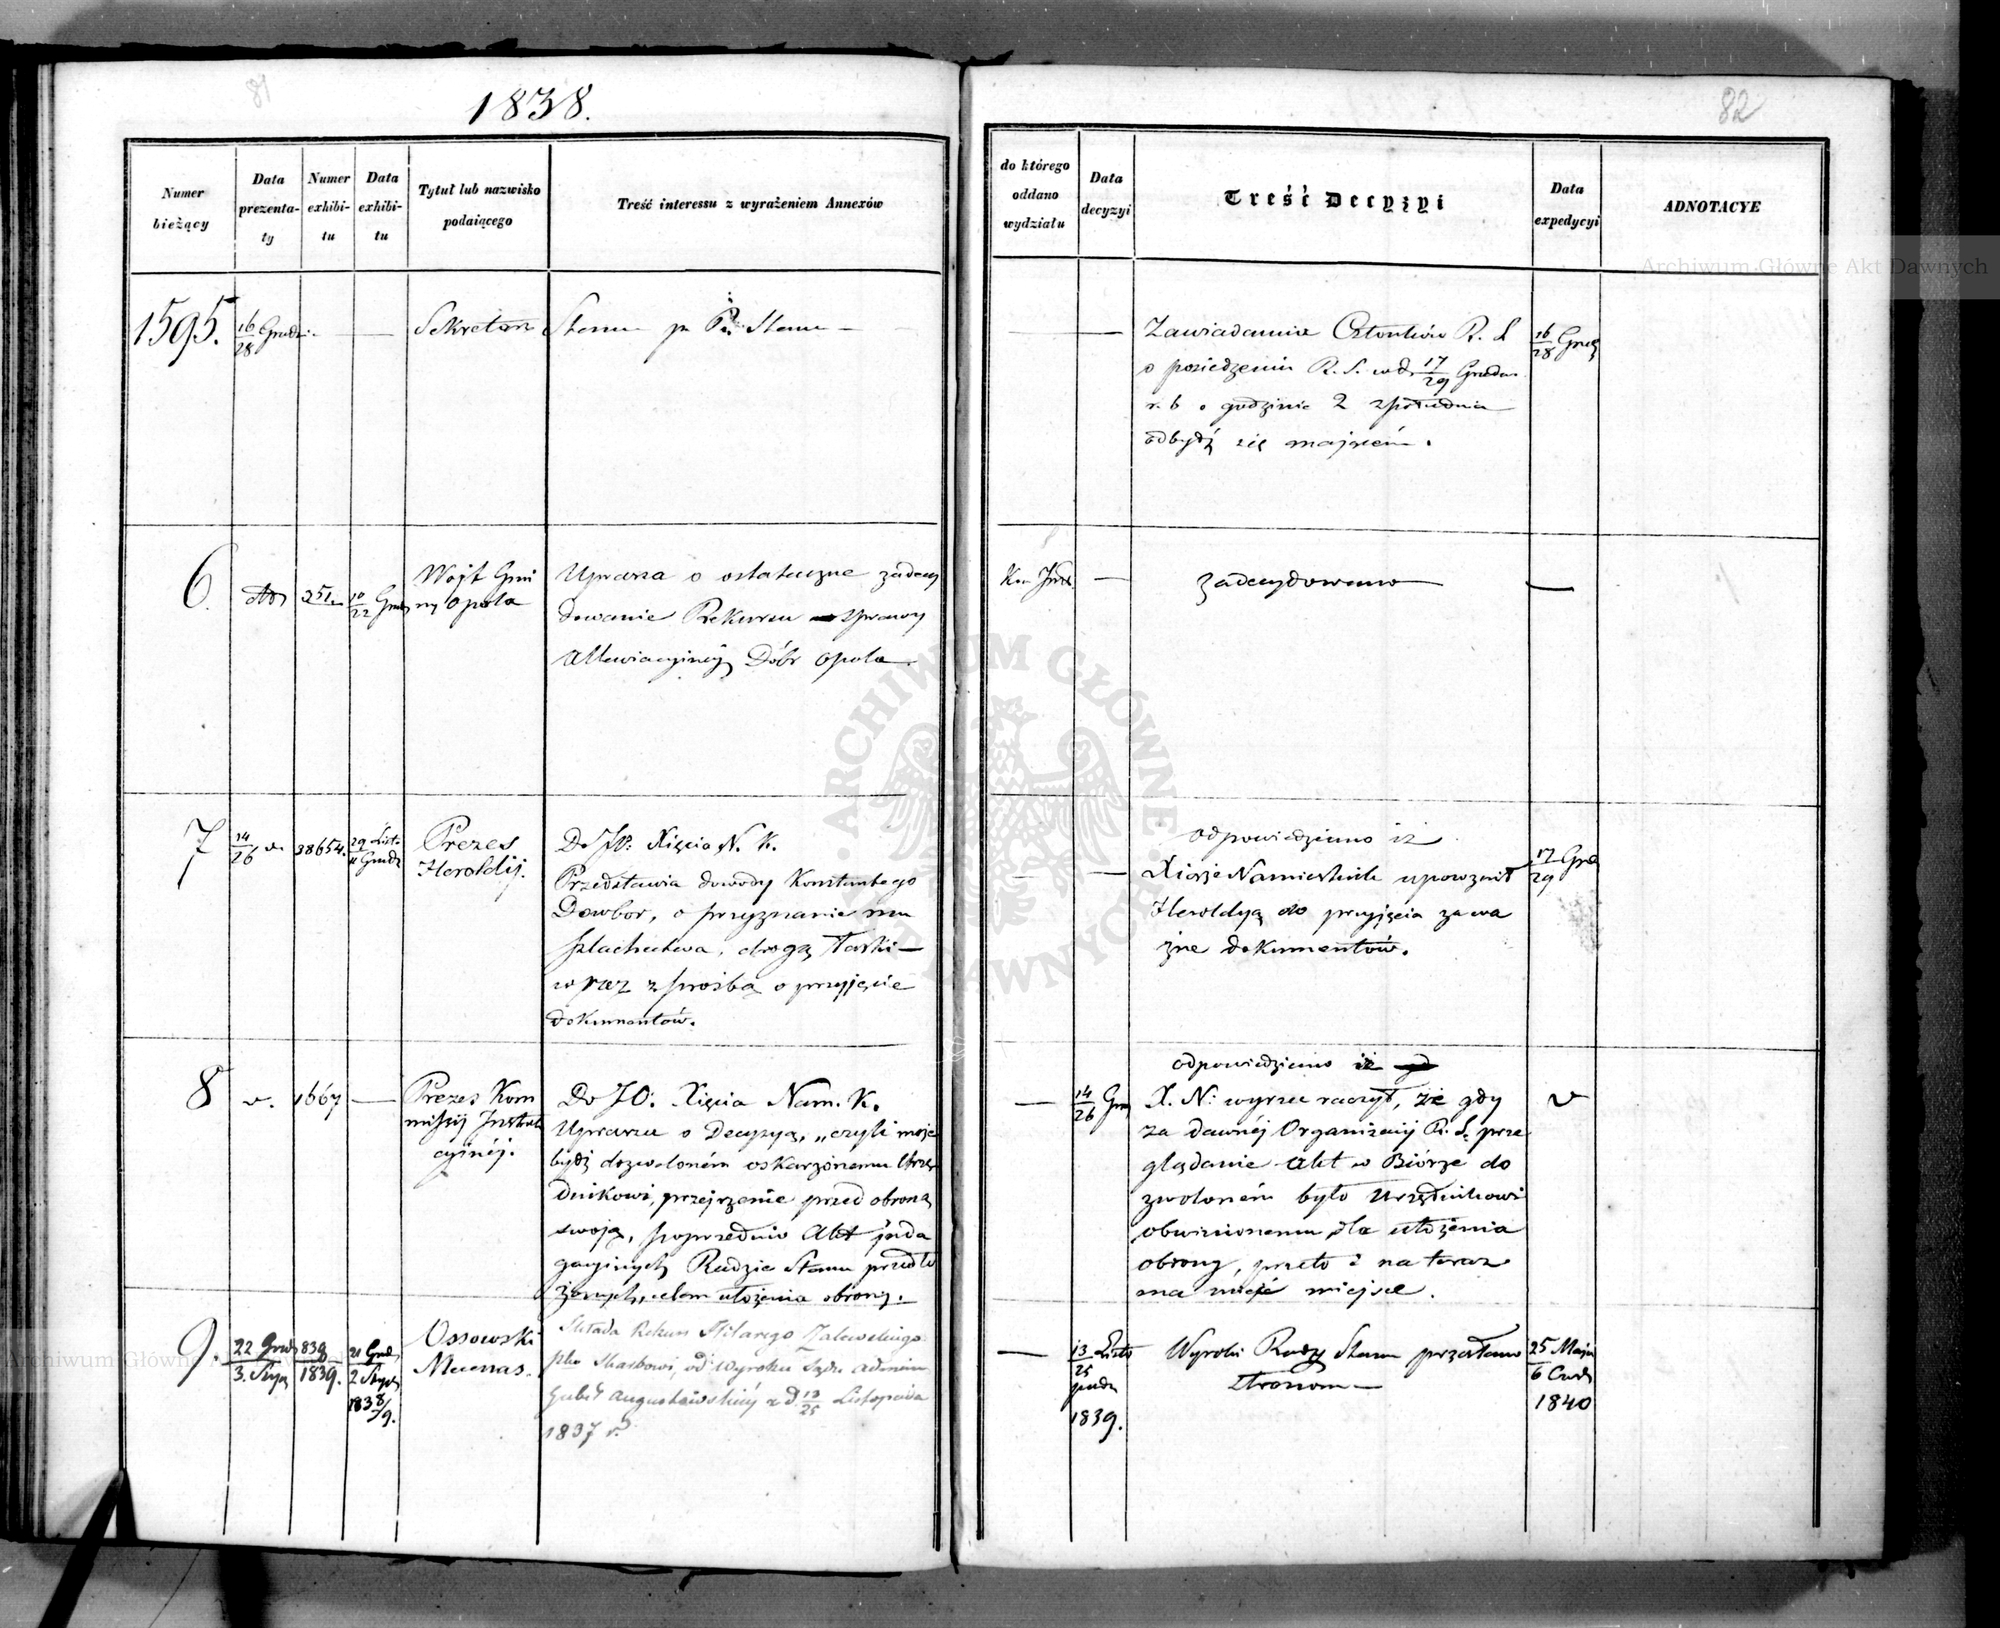 81
1838.
Numer bieżący
Data prezenta-ty
Numer exhibi-tu
Data exhibi-tu
Tytuł lub nazwisko podaiącego
Treść interessu z wyrażeniem Annexów
1595.
16/28 Grudn.
Sekretarz Stanu
6.
10/22 Grud
Wojt Gmi
ny Opola
Uprasza o ostateczne zadecy
dowanie Rekursu sprawy
Allewiacyjnéj Dóbr Opola
7
14/26
38654.
29 List.
11 Grudz
Prezes
Heroldij.
Do JO: Xięcia N. K.
Przedstawia dowody Konstantego
Dowbor, o przyznanie mu
szlachectwa, drogą łaski
wraz z prośbą o przyjęcie
dokumentów.
8
1667
Prezes Kom
missyi Instruk
cyjnéj.
Do JO: Xięcia Nam. K.
Uprasza o Decyzyą, „czyli może
bydź dozwoloném oskarżonemu Urzę
dnikowi, przejrzenie przed obroną
swoją, poprzednio Akt inda
gacyinych Radzie Stanu przedło
żonych, celem ułożenia obrony.
9.
22 Grud
3. Stycz
839
1839.
21 Grud.
2 Stycz
1838/9.
Ossowski
Mecenas.
Składa Rekurs Hilarego Zalewskiego
pko Skarbowi, od Wyroku Sądu Admin
Gub: Augustowskiéj z d. 13/25 Listopada
1837 r.
82
do którego oddano wydziału
Data decyzyi
Treść Decyzyi
Data expedycyi
ADNOTACYE
Zawiadamia Członków R. S
o posiedzeniu R. S. w d. 17/29 Grudnia
r. b o godzinie 2 z południa
odbydź się mającém.
16/28 Grud
zadecydowano
odpowiedziano iż
Xiąże Namiestnik upoważnił
Heroldyą do przyjęcia za wa
żne dokumentów.
17/29 Grud
14/26 Gru
odpowiedziano iż
X. N: wyrzec raczył, że gdy
za dawnéj Organizacij R. S. prze
glądanie akt w Biórze do
zwoloném było Urzędnikowi
obwinionemu dla ułożenia
obrony, przeto i na teraz
ma mieć miejsce.
13/25 Listo
pada
1839.
Wyrok Rady Stanu przesłano
stronom
25 Maja
6 Czerw
1840
Archiwum Główne Akt Dawnych
ARCHIWUM GŁÓWNE AKT DAWNYCH